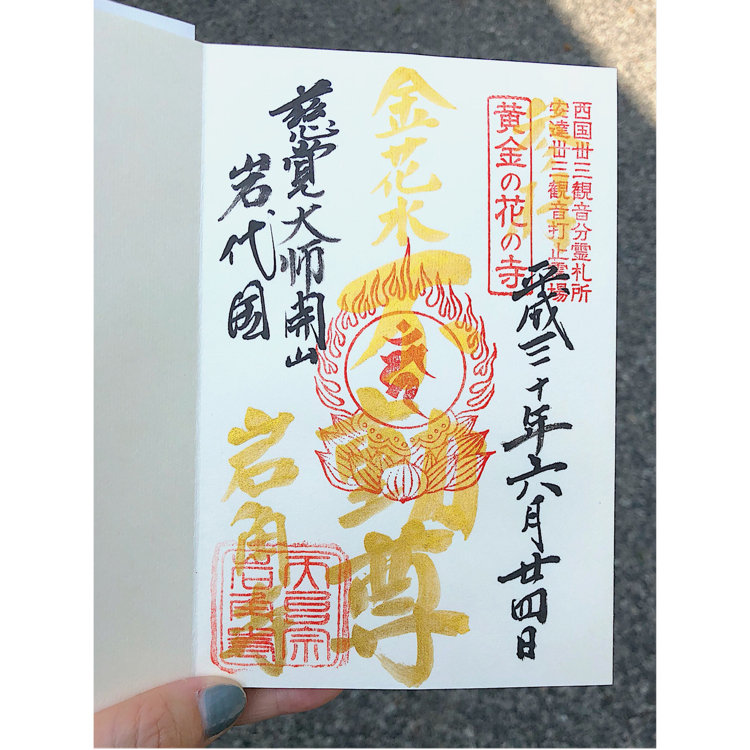 西国丗三観音分霊札所
安達丗三観音打止霊場
黄金の花の寺
奉拝
平成三十年六月廿四日
金花水
不動尊
慈覚大師開山
岩代国
岩角寺